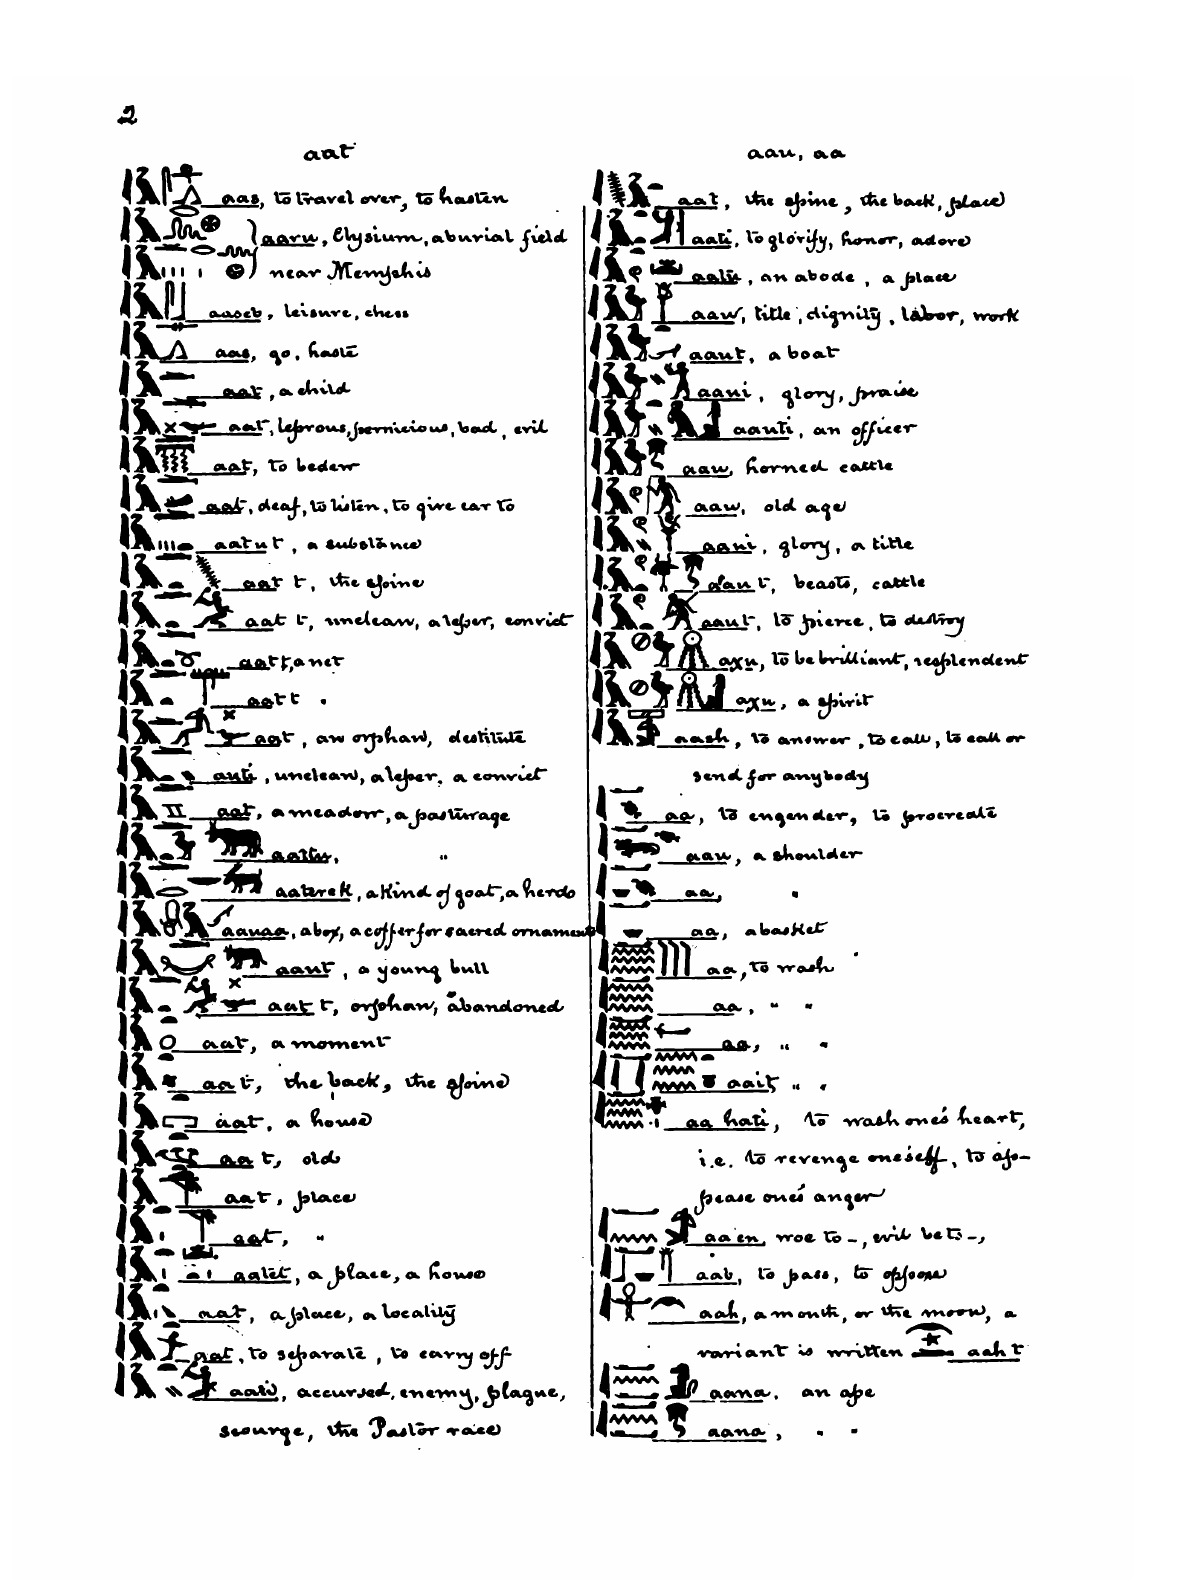 2
aat
aas, to travel over, to hasten
aaru, Elysium, a burial field
near Memphis
aaseb, leisure, chess
aas, go, haste
aat, a child
aat, leprous, pernicious, bad, evil
aat, to bedew
aat, deaf, to listen, to give ear to
aatut, a substance
aat t, the spine
aat t, unclean, a leper, convict
aat t, a net
aat t .
aat, an orphan, destitute
aati, unclean, a leper, a convict
aat, a meadow, a pasturage
aatu, "
aaterek, a kind of goat, a herd
aauaa, a box, a coffer for sacred ornaments
aaut, a young bull
aat t, orphan, abandoned
aat, a moment
aat, the back, the spine
aat, a house
aat, old
aat, place
aat, "
aatet, a place, a house
aat, a place, a locality
aat, to separate, to carry off
aati, accursed, enemy, plague,
scourge, the Pastor race
aau, aa
aat, the spine, the back, place
aati, to glorify, honor, adore
aatu, an abode, a place
aaw, title, dignity, labor, work
aaut, a boat
aaui, glory, praise
aauti, an officer
aaw, horned cattle
aaw, old age
aaui, glory, a title
aaut, beasts, cattle
aaut, to pierce, to destroy
aχu, to be brilliant, resplendent
aχu, a spirit
aash, to answer, to call, to call or
send for anybody
aa, to engender, to procreate
aau, a shoulder
aa, "
aa, a basket
aa, to wash
aa, " "
aa, " "
aait, " "
aa hati, to wash one's heart,
i.e. to revenge oneself, to ap-
pease one's anger
aa en, woe to -, evil be to -,
aab, to pass, to oppose
aah, a month, or the moon, a
variant is written aah t
aana, an ape
aana, " "